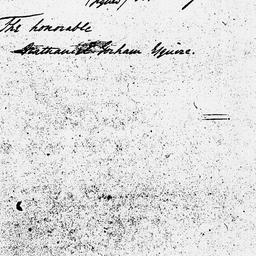 (signed)
The honorable
Nathaniel Gorham Esquire.